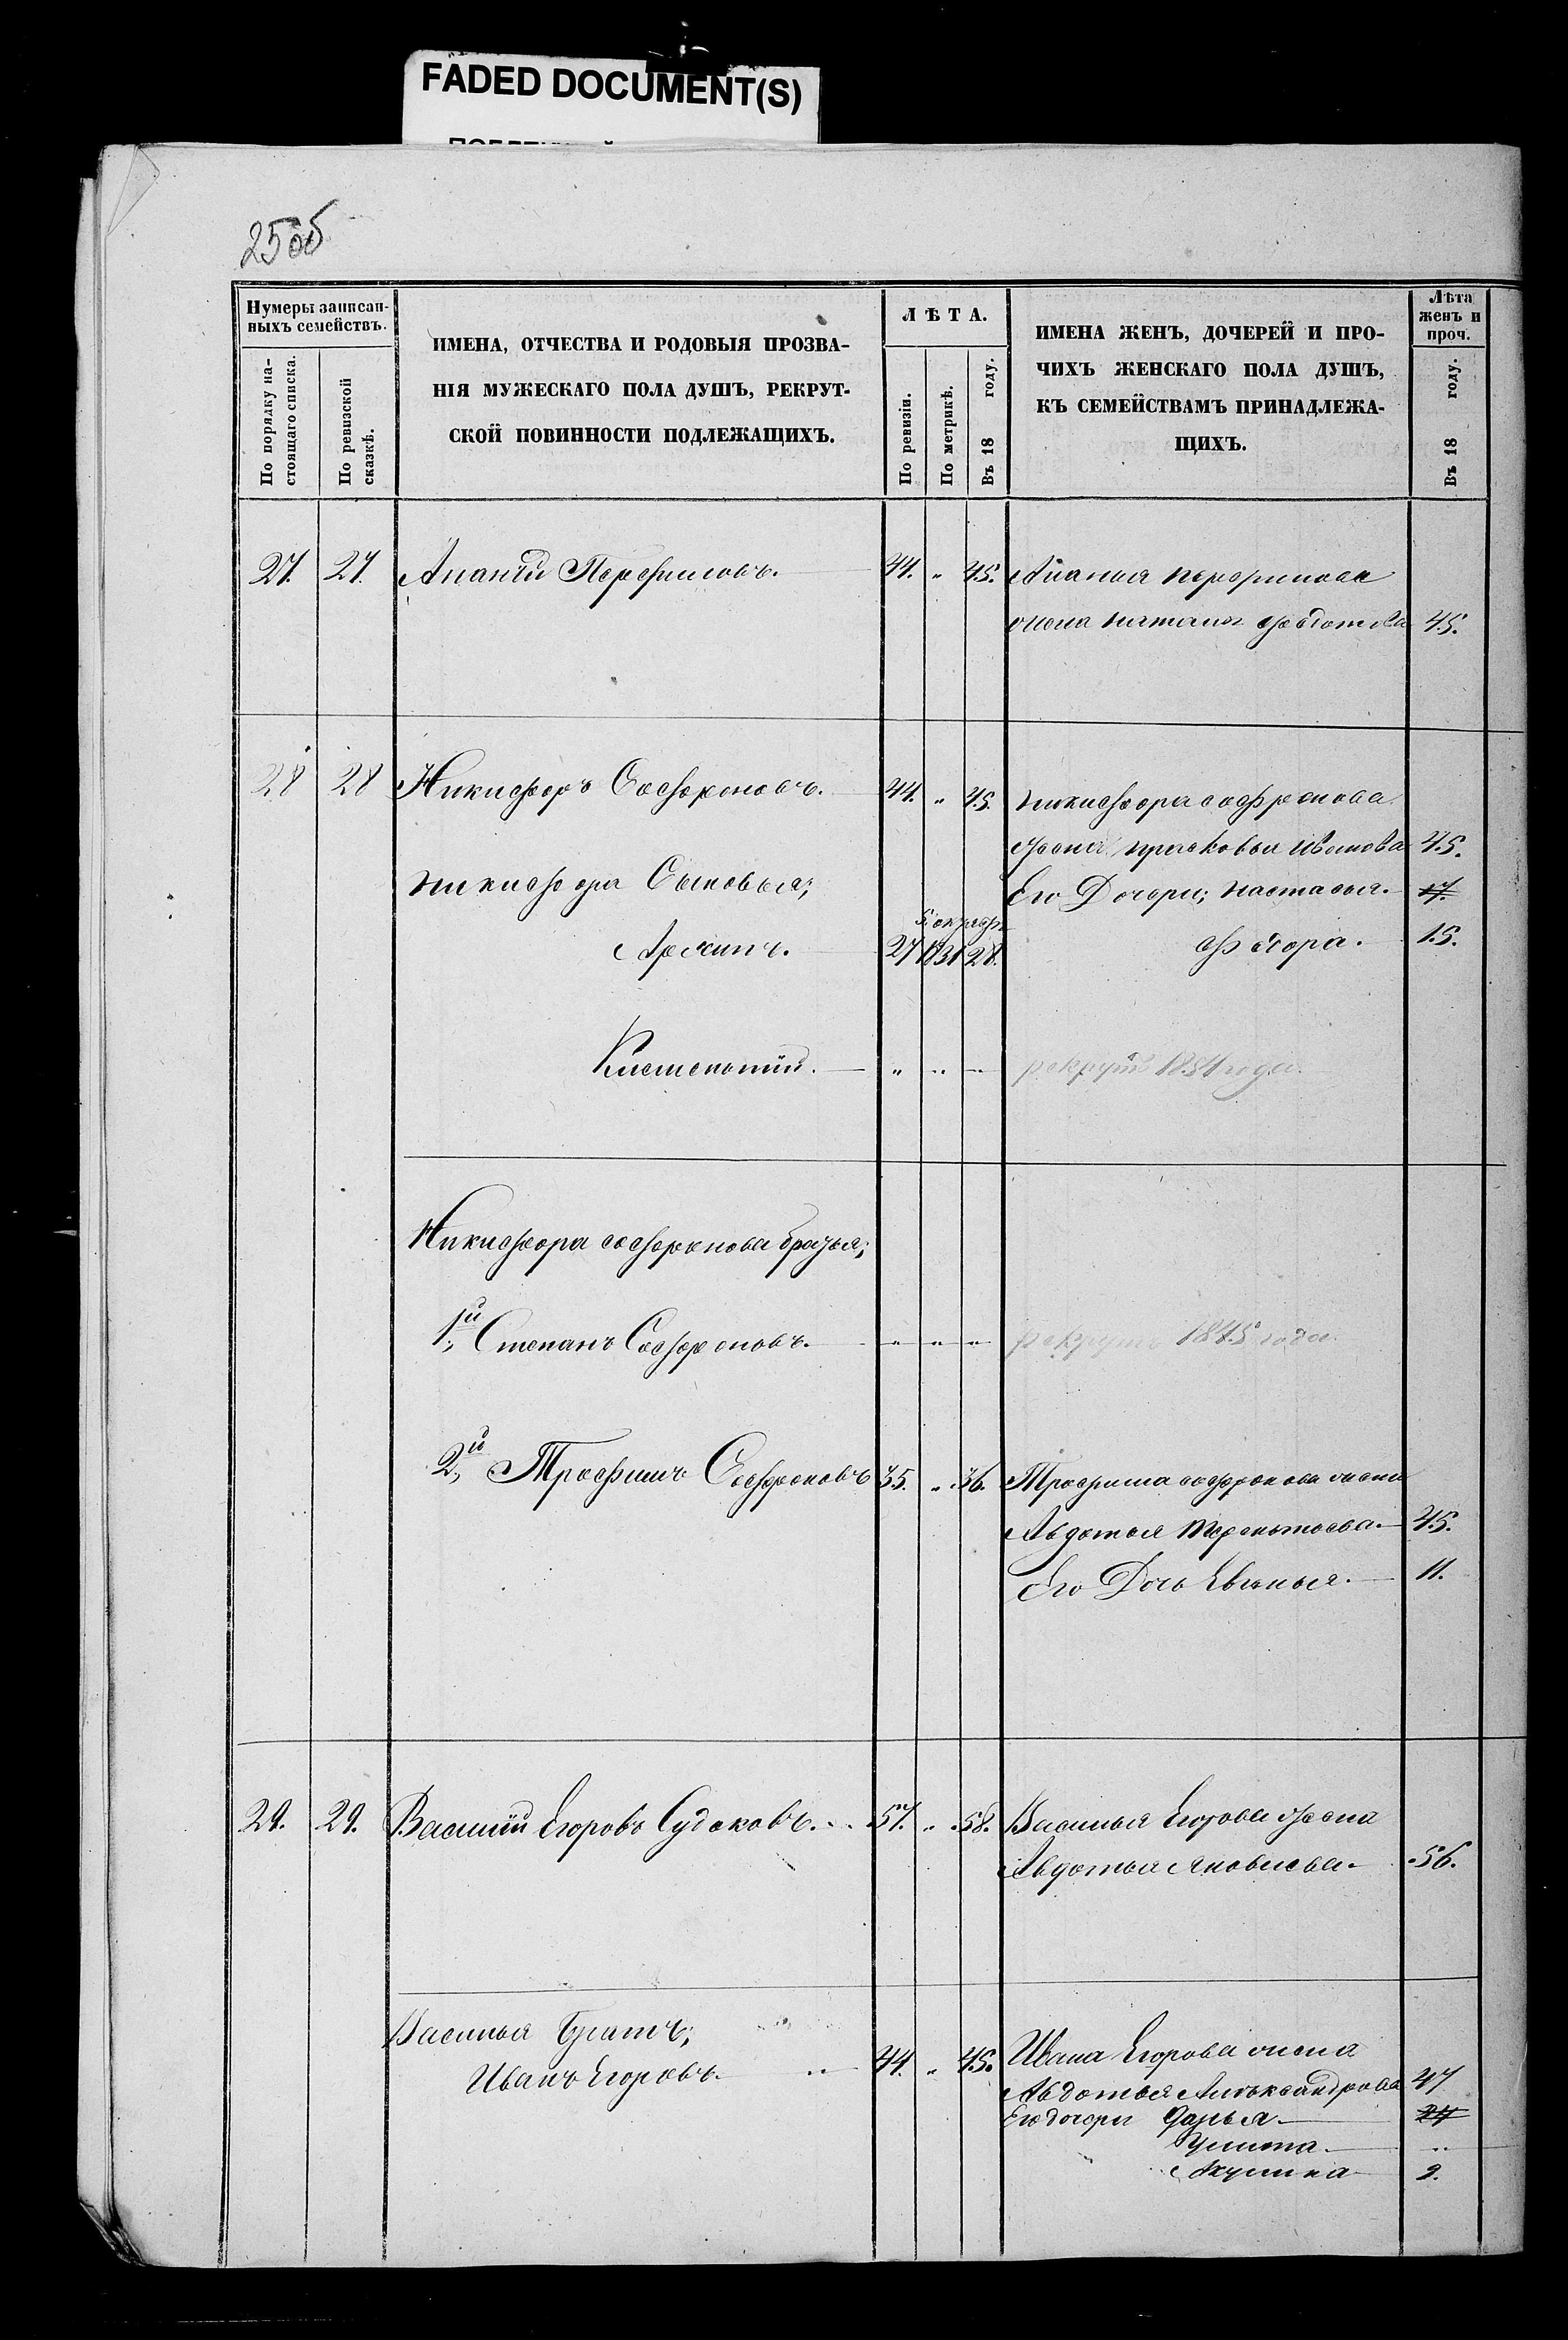 FADED DOCUMENT(S)
25об
Нумеры записан-
ныхъ семействъ.
По порядку на-
стоящаго списка.
По ревизской
сказкѣ.
ИМЕНА, ОТЧЕСТВА И РОДОВЫЯ ПРОЗВА-
НІЯ МУЖЕСКАГО ПОЛА ДУШЪ, РЕКРУТ-
СКОЙ ПОВИННОСТИ ПОДЛЕЖАЩИХЪ.
ЛѢТА.
По ревизіи.
По метрикѣ.
Въ 18 году.
ИМЕНА ЖЕНЪ, ДОЧЕРЕЙ И ПРО-
ЧИХЪ ЖЕНСКАГО ПОЛА ДУШЪ,
КЪ СЕМЕЙСТВАМЪ ПРИНАДЛЕЖА-
ЩИХЪ.
Лѣта
женъ и
проч.
Въ 18 году.
27. 27. Ананій Перфиловъ. 44. " 45. Ананья перфилова
жена наталья федотова 45.
28 28 Никифоръ Софроновъ. 44. " 45. никифора софронова
жена прасковья иванова 45.
никифора Сыновья; Его Дочери; настасья. 17.
Архипъ. 27 1831 28. федора. 15.
" " " рекрутъ 1854 года.
Никифора софронова братья;
1й, Степанъ Софроновъ. " " " рекрутъ 1845 года.
2й, Трофимъ Софроновъ 35. " 36. Трофима софронова жена
Авдотья терентьева. 45.
Его Дочь Евгенья. 11.
29. 29. Василій Егоровъ Судаковъ. 57. " 58. Василья Егорова жена
Авдотья яковлева. 56.
Василья братъ;
Иванъ Егоровъ. 44. " 45. Ивана Егорова жена
Авдотья Александрова 47
Его дочери Дарья 24
Улита ..
Акулина 9.